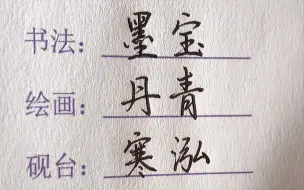 书法：墨宝
绘画：丹青
砚台：寒泓